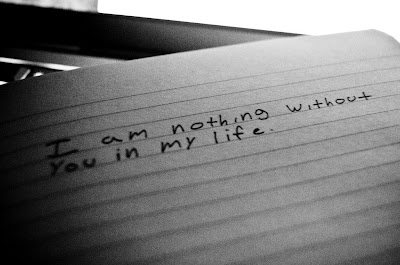 I am nothing without
You in my life.